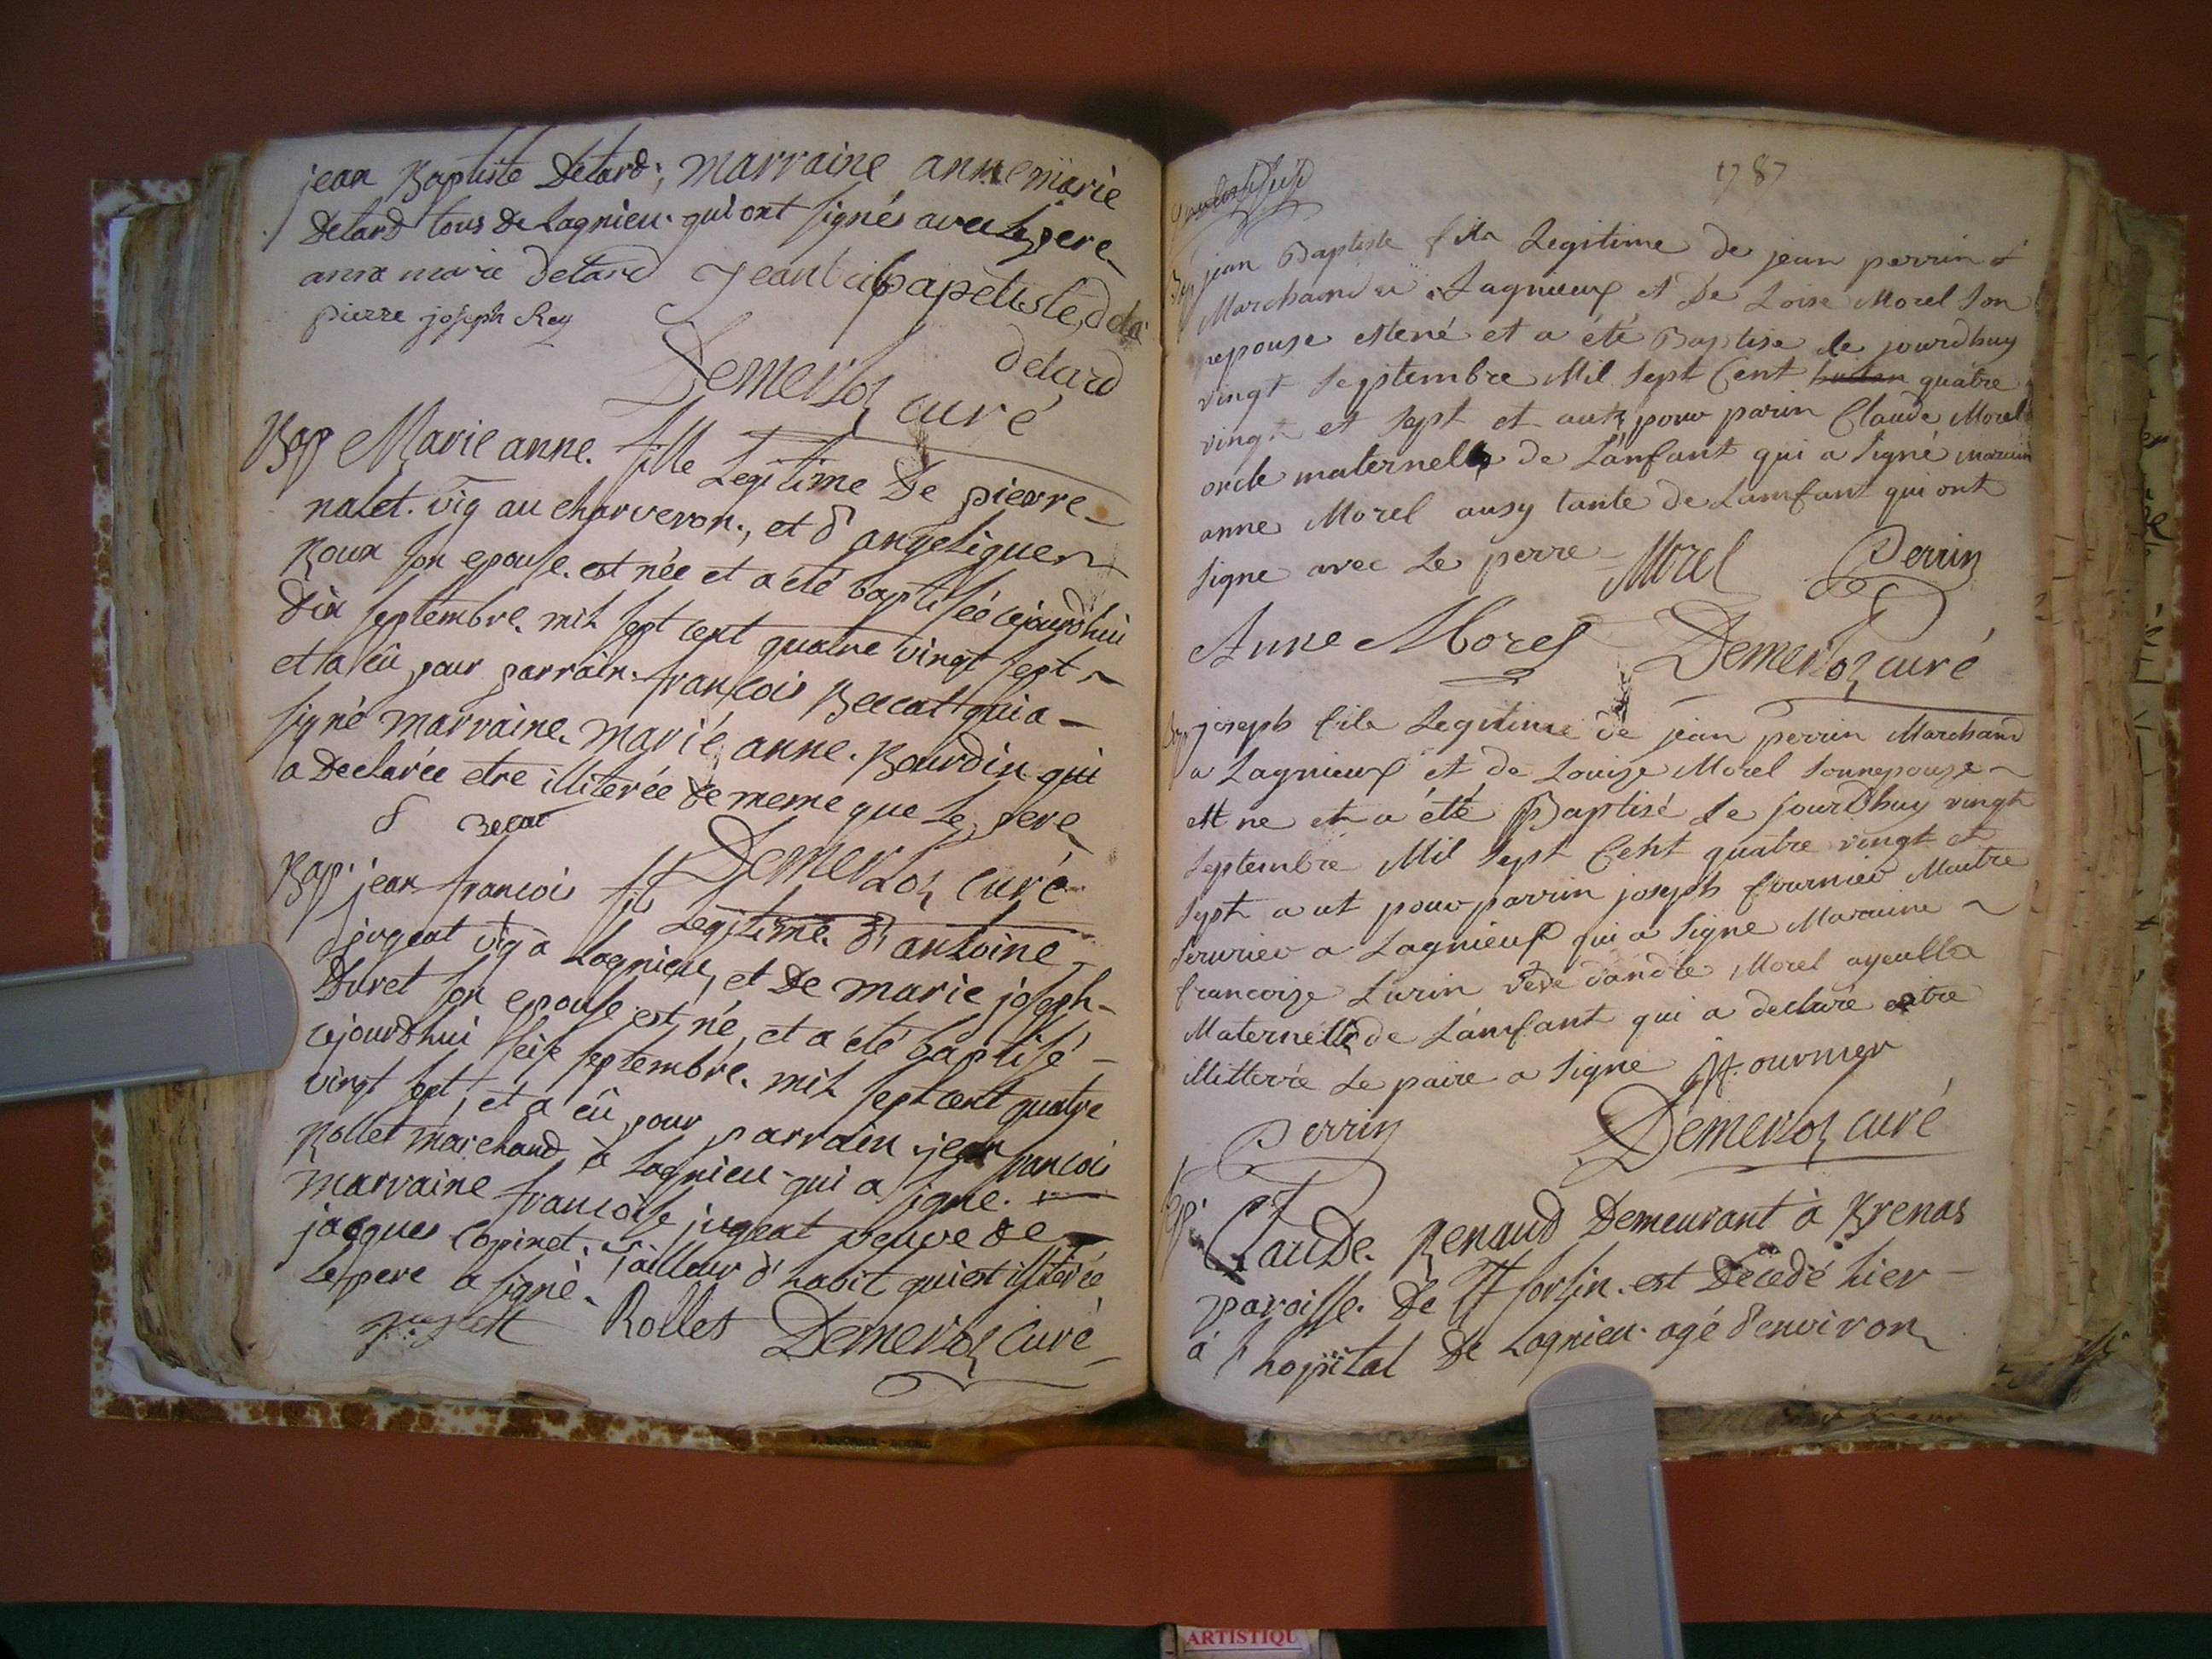 jean Baptiste Detard; marraine anne marie
Detard tous De Lagnieu qui ont signés avec le pere
anna marie detard jean bapetiste, deta
pierre joseph Rey
detard
Demerloz curé
Bap Marie anne. fille Legitime De pierre
nalet. vig au charveron., et d'angelique
Roux son epouse. est née et a été baptisée cejourd'hui
Dix septembre. mil sept cent quatre vingt sept
et a eû pour parrain. françois Beccat qui a
signé marraine. marie anne. Bourdin qui
a Declarée etre illiterée de meme que le pere
Becat
Demerloz curé
Bap. jean francois fils Legitime. d'antoine
jugeat vig à Lagnieu, et De marie joseph
Duret son epouse est né, et a été baptisé
cejourd'hui seize septembre. mil sept cent quatre
vingt sept, et a eû pour parrain jean francois
Rollet marchand à Lagnieu qui a signé.
marraine françoise jugeat veuve de
jacques Copinet. tailleur d'habit qui est illiterée
Le pere a signé.
jugeat Rollet Demerloz Curé
1787
Bap jean Baptiste fils Legitime de jean perrin
Marchand a Lagnieux et De Loise Morel son
epouse est né et a été Baptise le jourdhuy
vingt septembre Mil sept Cent quatre
vingt et sept et aut pour parin Claude Morel
oncle maternelle de Lanfant qui a signé maraine
anne Morel ausy tante de Lamfant qui ont
signe avec Le perre Morel Perrin
Anne Morel Demerloz curé
Bap joseph fils Legitime de jean perrin Marchand
a Lagnieux et de Louize Morel sonnepouze
est ne et a été Baptisé Le jourdhuy vingt
septembre Mil sept Cent quatre vingt et
sept a ut pour parrin joseph fournier Maitre
serurier a Lagnieux qui a signe Maraine
francoize Lurin veve dandre Morel ayeulle
Maternelle de Lamfant qui a declaré estre
illitterée Le paire a signe J. fournier
Perrin Demerloz curé
Claude. Renaud Demeurant à Brenas
paroisse. De St sorlin. est Décedé hier
à l'hopital De Lagnieu. agé d'environ
ARTISTIQU